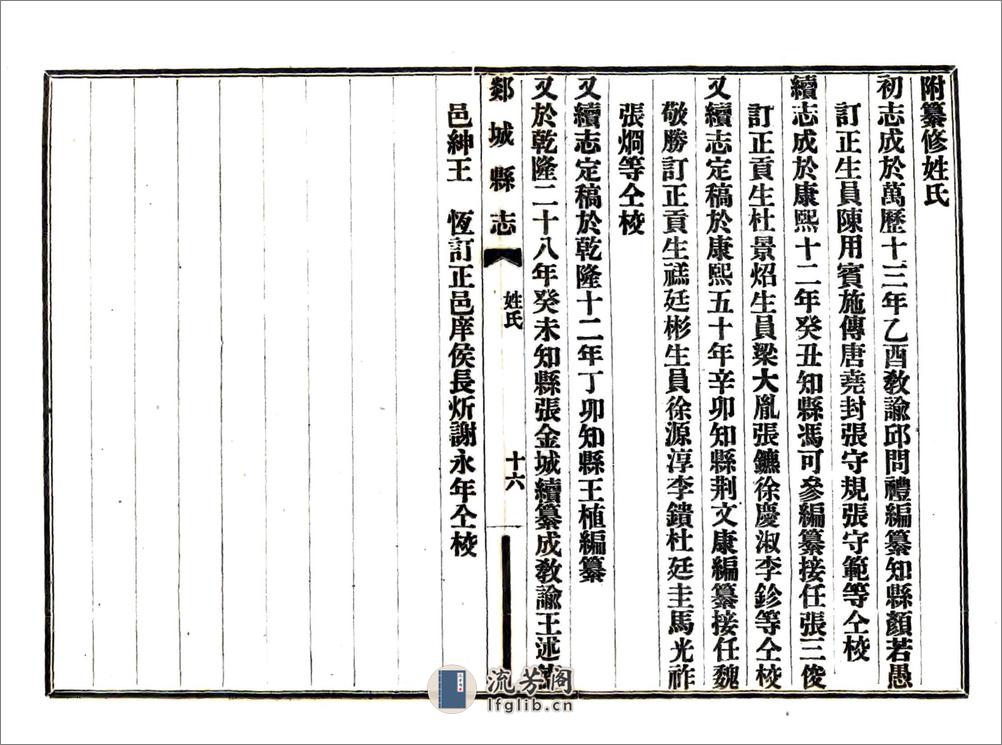 附纂修姓氏
初志成於萬歷十三年乙酉教諭邱問禮編纂知縣顏若愚
訂正生員陳用賓施傳唐堯封張守規張守範等仝校
續志成於康熙十二年癸丑知縣馮可參編纂接任張三俊
訂正貢生杜景炤生員梁大胤張鑣徐慶淑李鉁等仝校
又續志定稿於康熙五十年辛卯知縣荆文康編纂接任魏
敬勝訂正貢生禚廷彬生員徐源淳李鐀杜廷圭馬光祚
張烱等仝校
又續志定稿於乾隆十二年丁卯知縣王植編纂
又於乾隆二十八年癸未知縣張金城續纂成教諭王述
郯城縣志
姓氏
十六
邑紳王 恆訂正邑庠侯長炘謝永年仝校
流芳阁
lfglib.cn